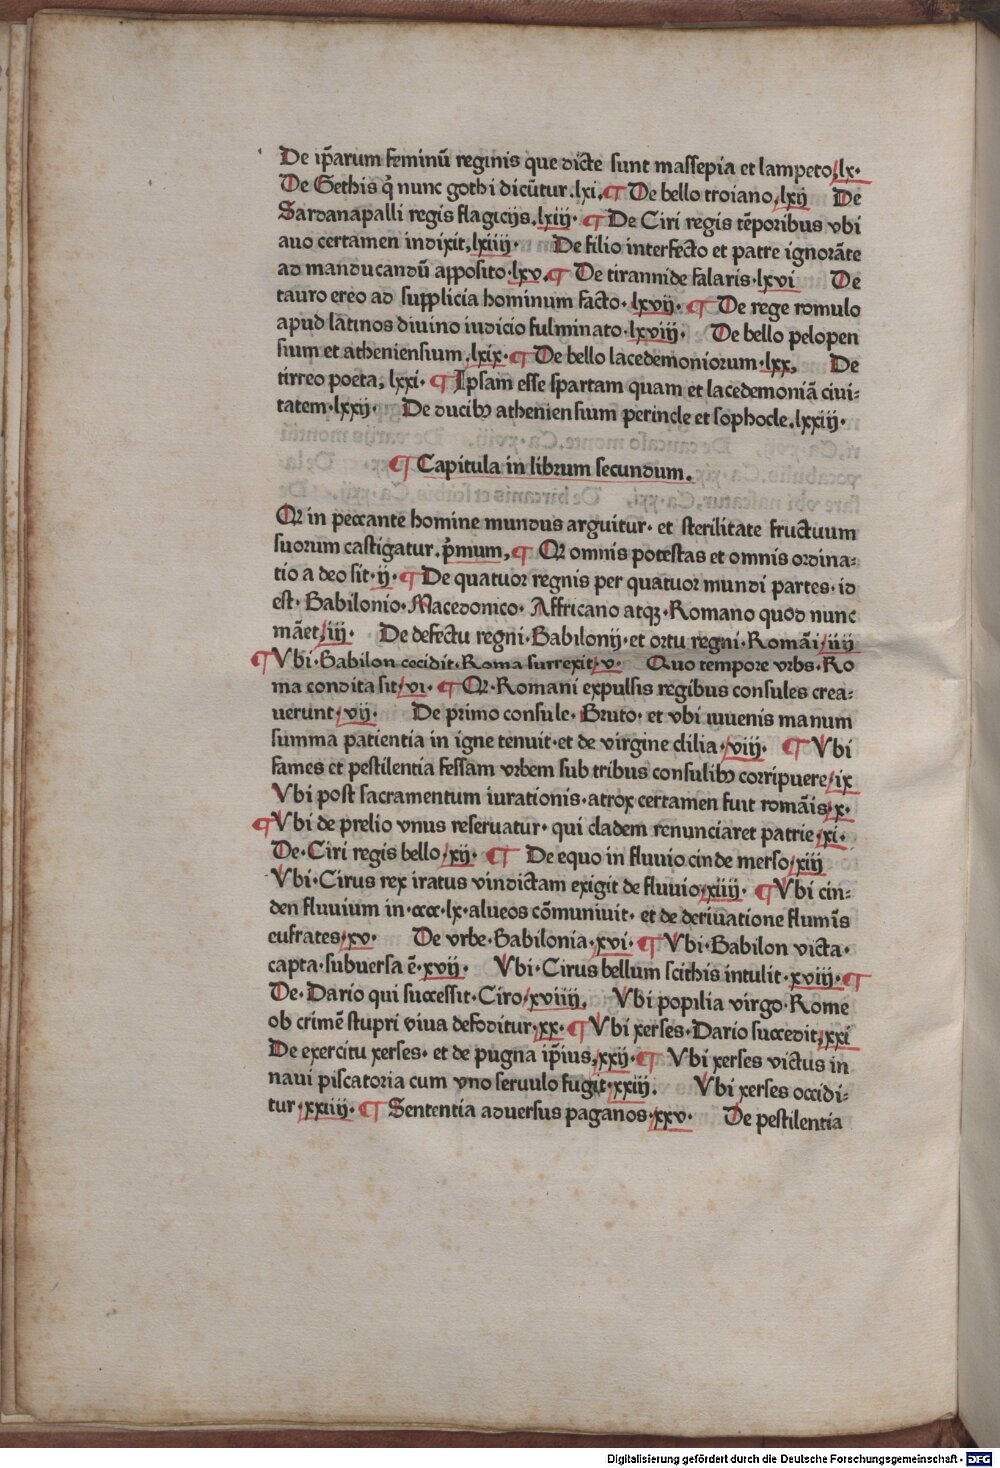 De ip̄arum feminū reginis que dicte sunt massepia et lampeto,lx·
De Gethis q̄ nunc gothi dicūtur.lxi.¶ De bello troiano.lxij De
Sardanapalli regis flagicijs.lxiij· ¶ De Ciri regis tēporibus vbi
auo certamen indixit,lxiiij· De filio interfecto et patre ignorāte
ad manducandū apposito·lxv.¶ De tirannide falaris·lxvi De
tauro ereo ad supplicia hominum facto·lxvij· ¶ De rege romulo
apud latinos diuino iudicio fulminato·lxviij· De bello pelopen
sium et atheniensium.lxix·¶ De bello lacedemoniorum·lxx, De
tirreo poeta, lxxi· ¶ Ipsam esse spartam quam et lacedemoniā ciui⸗
tatem·lxxij· De ducibꝫ atheniensium perincle et sophocle.lxxiij·
¶ Capitula in librum secundum.
Qꝛ in peccante homine mundus arguitur· et sterilitate fructuum
suorum castigatur.p̄mum,¶ Qꝛ omnis potestas et omnis ordina⸗
tio a deo sit·ij·¶ De quatuor regnis per quatuor mundi partes·id
est·Babilonio·Macedonico·Affricano atqꝫ·Romano quod nunc
māet/iij· De defectu regni·Babilonij·et ortu regni·Romāi/iiij
¶ Vbi·Babilon cecidit·Roma surrexit/v· Quo tempore vrbs·Ro
ma condita sit/vi·¶ Qꝛ·Romani expulsis regibus consules crea⸗
uerunt/vij· De primo consule·Bruto·et vbi iuuenis manum
summa patientia in igne tenuit·et de virgine clilia·/viij· ¶ Vbi
fames et pestilentia fessam vrbem sub tribus consulibꝫ corripuere/ix
Vbi post sacramentum iurationis·atrox certamen fuit romāis/x·
¶ Vbi de prelio vnus reseruatur·qui cladem renunciaret patrie/xi·
De·Ciri regis bello/xij· ¶ De equo in fluuio cinde merso/xiij
Vbi·Cirus rex iratus vindictam exigit de fluuio/xiiij· ¶ Vbi cin⸗
den fluuium in·ccc·lx·alueos cōmuniuit·et de deriuatione flumīs
eufrates·xv· De vrbe·Babilonia·xvi·¶ Vbi·Babilon victa·
capta·subuersa ē·xvij· Vbi·Cirus bellum scithis intulit·xviij·¶
De·Dario qui successit·Ciro/xviiij. Vbi popilia virgo·Rome
ob crimē stupri viua defoditur/xx·¶ Vbi xerses·Dario succedit,xxi
De exercitu xerses·et de pugna ip̄ius,xxij·¶ Vbi xerses victus in
naui piscatoria cum vno seruulo fugit·xxiij. Vbi xerses occidi⸗
tur·xxiiij·¶ Sententia aduersus paganos·xxv· De pestilentia
Digitalisierung gefördert durch die Deutsche Forschungsgemeinschaft - DFG